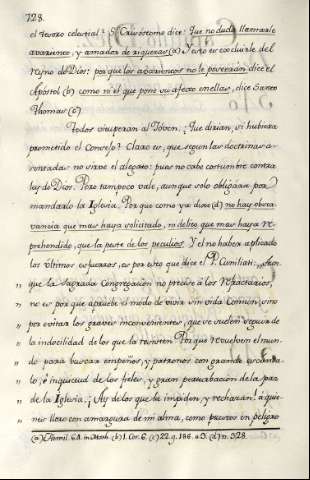 728.
el tesoro celestial? S. Crisóstomo dice: Que no duda llamarle
avariento, y amador de riquezas (a) Y esto es excluirle del
reyno de Dios: porque los avarientos no le poseerán dice el
Apóstol (b) como ni el que pone su afecto en ellas, dice Santo
Thomas (c)
Todos vituperan al Jóven. ¿Que dirian, si hubiera
prometido el Consejo? Claro es, que segun las doctrinas a-
sentadas no sirve el alegato: pues no cabe costumbre contra
ley de Dios. Pero tampoco vale, aunque solo obligára por
mandarlo la Iglesia. Por que como ya dixe (d) no hay obser-
vancia que mas haya solicitado, ni delito que mas haya re-
prehendido, que la peste de los peculios. Y el no haber aplicado
los últimos esfuerzos, es por esto que dice el P. Cumiliati: Aun
„ que la Sagrada Congregacion no precise á los refractarios,
„ no es por que apruebe el modo de vivir sin vida Comun, sino
„ por evitar los graves inconvenientes, que se suelen seguir de
„ la indocilidad de los que la resisten. Porque revuelven el mun-
„ do para buscar empeños, y patronos con grande escánda-
„ lo, é inquietud de los fieles, y gran perturbacion de la paz
„ de la Iglesia. ¡Ay de los que la impiden, y rechazan! á quie-
„ nes lloro con amargura de mi alma, como puestos in peligro
(a) Homil. 64. in Math. (b) 1. Cor. 6. (c) 22. q. 186. a 3. (d) n. 528.